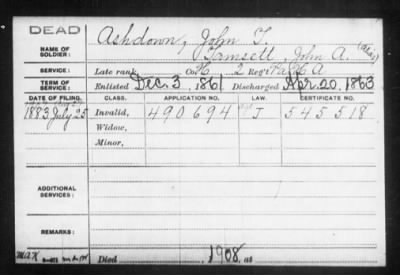 DEAD
NAME OF SOLDIER: Ashdown, John T.
Tamsett, John A. (alias)
SERVICE: Late rank, Co. H, 2 Reg't Pa H A
TERM OF SERVICE: Enlisted Dec. 3, 1861 Discharged Apr. 20, 1863
DATE OF FILING. CLASS. APPLICATION NO. LAW. CERTIFICATE NO.
1883 July 25 Invalid, 490694 J 545518
Widow,
Minor,
ADDITIONAL SERVICES:
REMARKS:
Died 1908, at